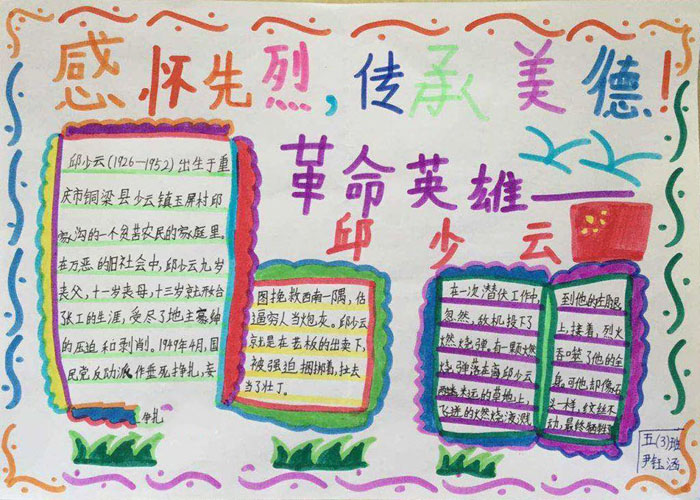 感怀先烈,传承美德!
革命英雄——
邱少云
邱少云(1926—1952)出生于重
庆市铜梁县少云镇玉屏村邱
家沟的一个贫苦农民的家庭里。
在万恶的旧社会中,邱少云九岁
丧父,十一岁丧母,十三岁就开始
张工的生涯,受尽了地主
的压迫和剥削。1949年4月,国
民党反动派作垂死挣扎,妄
挣扎
图挽救西南一隅,估
逼穷人当炮灰。邱少云
就是在老板的出卖下,
被强迫捆绑着,拉去
当了壮丁。
在一次潜伏工作中,
忽然,敌机投下了
燃烧弹,有一颗燃
烧弹落在离邱少云
不远的草地上,
飞迸的燃烧液溅
到他的左腿
上,接着,烈火
吞噬了他的全
身,可他却像石
头一样,纹丝不
动,最终牺牲
五(3)班
尹钰涵